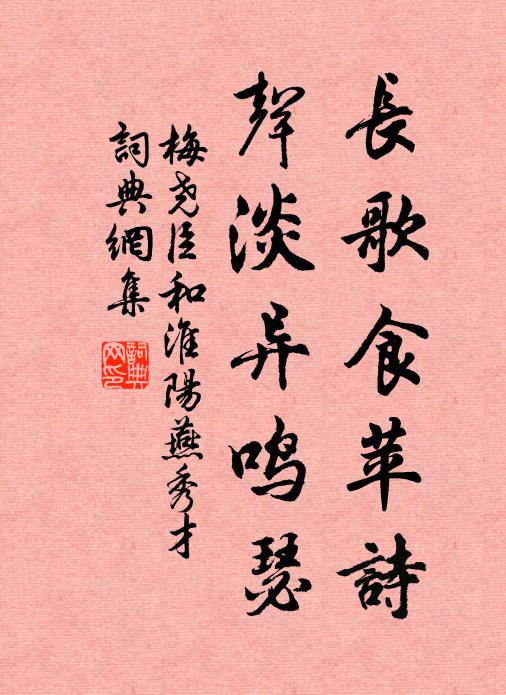 長歌食苹詩
聲淡异鸣瑟
梅尧臣和淮陽燕秀才
詞典網集
詞典网印